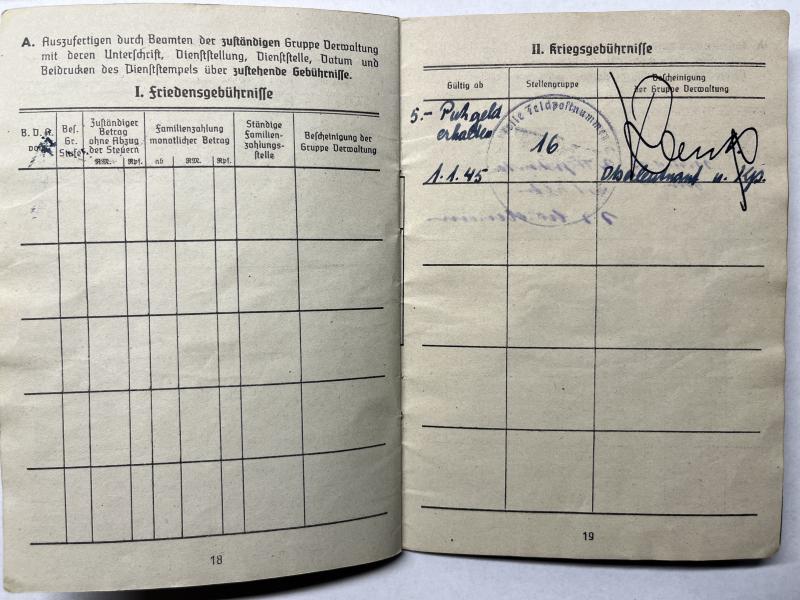 A. Auszufertigen durch Beamten der zuständigen Gruppe Verwaltung
mit deren Unterschrift, Dienststellung, Dienststelle, Datum und
Beidrucken des Dienststempels über zustehende Gebührnisse.
I. Friedensgebührnisse
B. D. A.
Bes. Gr. Stufe
Zuständiger Betrag ohne Abzug der Steuern
Familienzahlung monatlicher Betrag
Ständige Familien-zahlungs-stelle
Bescheinigung der Gruppe Verwaltung
RM. Rpf. ab RM. Rpf.
18
II. Kriegsgebührnisse
Gültig ab
Stellengruppe
Bescheinigung der Gruppe Verwaltung
5.- Putzgeld
erhalten
1.1.45
16
Feldpostnummer
Oberleutnant u.
19